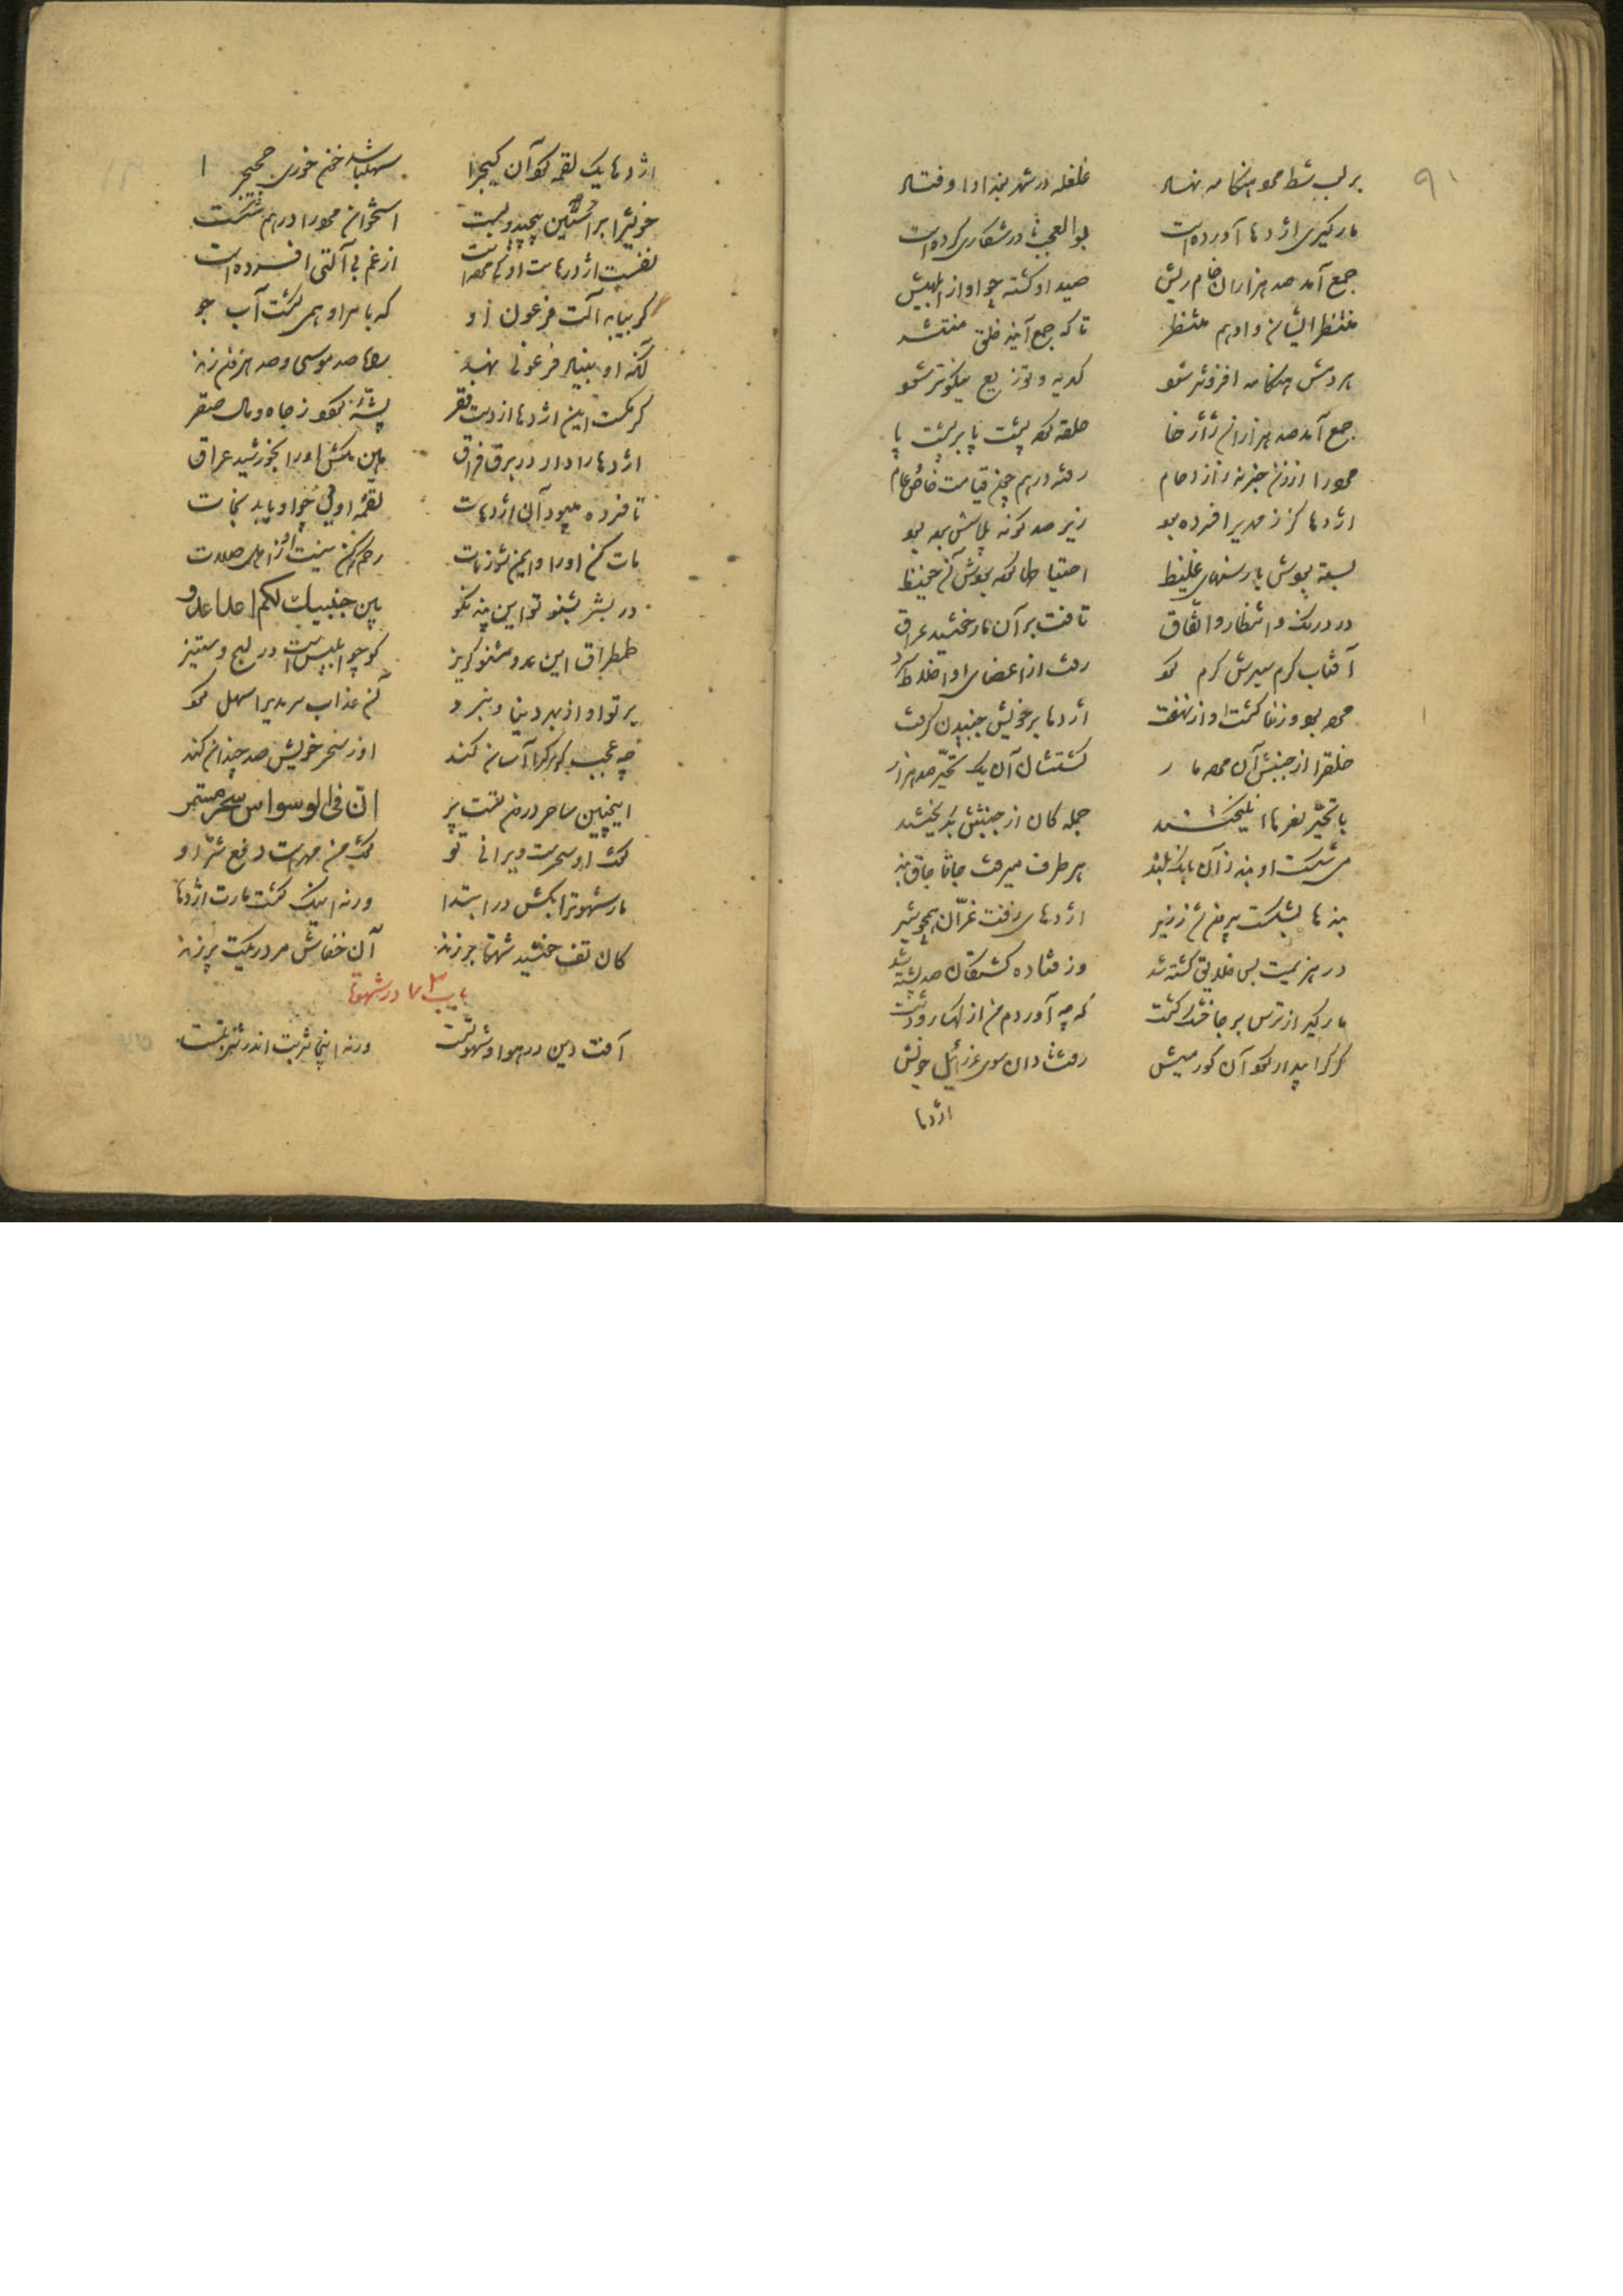 ٩١
بر لب شط مرد هنگامه نهاد غلغله در شهر بغداد اوفتاد
مارگیری اژدها آورده است بوالعجب نادر شکاری کرده است
جمع آمد صد هزاران خام ریش صید او گشته چو او از ابلهیش
منتظر ایشان و او هم منتظر تا که جمع آیند خلق منتشر
مردمش هنگامه افزونتر شود کدیه و توزیع نیکوتر شود
جمع آمد صد هزاران ژاژخا حلقه کرده پشت پا بر پشت پا
مرد را از زن خبر نه ز ازدحام رفته درهم چون قیامت خاص و عام
اژدها کز زمهریر افسرده بود زیر صد گونه پلاس پرده بود
بسته بودش با رسنهای غلیظ احتیاطی کرده بودش آن حفیظ
در درنگ و انتظار و اتفاق تافت بر آن مار خورشید عراق
آفتاب گرم سیرش گرم کرد رفت از اعضای او اخلاط سرد
مرده بود و زنده گشت او از شگفت اژدها بر خویش جنبیدن گرفت
خلق را از جنبش آن مرده مار گشتشان آن یک تحیر صد هزار
با تحیر نعرها انگیختند جمله کان از جنبشش بگریختند
می شکست او بند ز آن بانگ بلند هر طرف میرفت چاقا چاق بند
بندها بشکست بیرون شد ز زیر اژدهای زفت غران همچو شیر
در هزیمت بس خلایق کشته شد وز فتاده کشتگان صد پشته شد
مارگیر از ترس بر جا خشک گشت که چه آوردم من از کهسار و دشت
گرگ را بیدار کرد آن کور میش رفت نادان سوی عزرائیل خویش
اژدها
اژدها یک لقمه کرد آن گیج را سهل باشد خون خوری حجیج را
خویش را بر استنی پیچید و بست استخوان مرد را درهم شکست
نفست اژدرهاست او کی مرده است از غم بی آلتی افسرده است
گر بیابد آلت فرعون او که بامر او همی گشت آب جو
آنگه او بنیاد فرعونی نهد راه صد موسی و صد هارون زند
کرمکست این اژدها از دست فقر پشهٔ گردد ز جاه و مال صقر
اژدها را دار در برف فراق هین مکش او را بخورشید عراق
تا فسرده میبود آن اژدهات لقمهٔ اویی چو او یابد نجات
مات کن او را و ایمن شو ز مات رحم کم کن نیست او ز اهل صلات
در بشر بشنو تو این پند نکو بین جنبیکم لکم اعدا عدو
طمطراق این عدو مشنو گریز کو چو ابلیس است در لج و ستیز
بر تو او از بهر دنیا و نبرد آن عذاب سرمدیرا سهل کرد
چه عجب گر مرگ را آسان کند او ز سحر خویش صد چندان کند
اینچنین ساحر درون تست پر ان فی الوسواس سحر مستتر
مار شهوت را بکش در ابتدا ورنه اینک گشت مارت اژدها
کان تف خورشید شهوت بر زند آن خفاش مرده ریگت پر زند
باب در شهوت
آفت دین در هوا و شهوتست ورنه اینجا شربت اندر شربتست